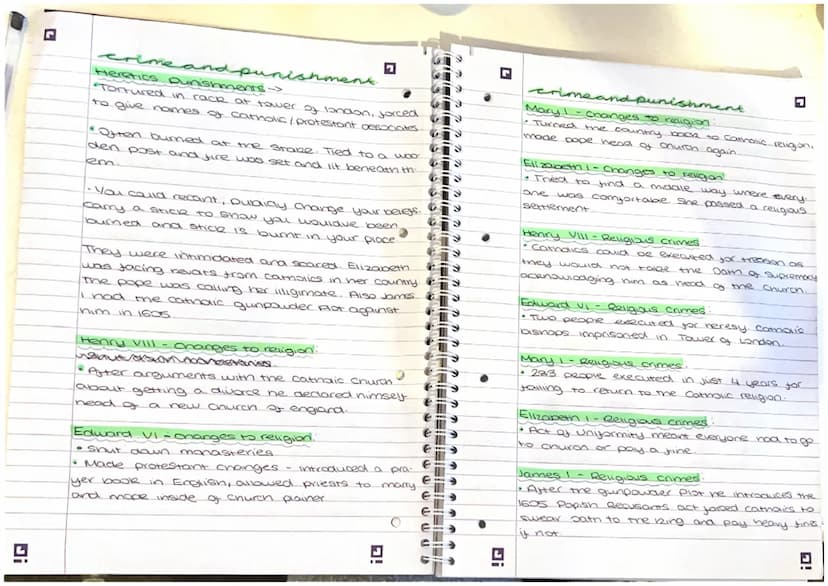 crime and punishment
Heretics punishments →
• Tortured in rack at tower of london, forced
to give names of catholic/protestant associates
• Often burned at the stake. Tied to a woo-
den post and fire was set and lit beneath th-
em.
• You could recant, publicly change your beliefs.
Carry a stick to show you wouldve been
burned and stick is burnt in your place
They were intimidated and scared. Elizabeth
was facing revolts from catholics in her country
The pope was calling her illigimate. Also James
I had the catholic gunpowder Plot against
him in 1605.
Henry VIII - changes to religion:
• After arguments with the Catholic Church
about getting a divorce he declared himself
head of a new church of england.
Edward VI - changes to religion.
• Shut down monasteries
• Made protestant changes - introduced a pra-
yer book in English, allowed priests to marry
and made inside of church plainer
crime and punishment
Mary I - Changes to religion:
• Turned the country back to Catholic religion,
made pope head of church again.
Elizabeth I - Changes to religion
• Tried to find a middle way where every-
one was comfortable she passed a religious
settlement
Henry VIII - Religious crimes
• Catholics could be executed for treason as
they would not take the Oath of Supremacy
acknowledging him as head of the church.
Edward VI - Religious crimes:
• Two people executed for heresy. Catholic
bishops imprisoned in Tower of London.
Mary I - Religious crimes:
• 283 people executed in just 4 years for
failing to return to the Catholic religion.
Elizabeth I - Religious crimes:
• Act of Uniformity meant everyone had to go
to church or pay a fine.
James I - Religious crimes:
• After the gunpowder Plot he introduced the
1605 Popish Recusants act forced catholics to
swear oath to the king and pay heavy fine
if not.